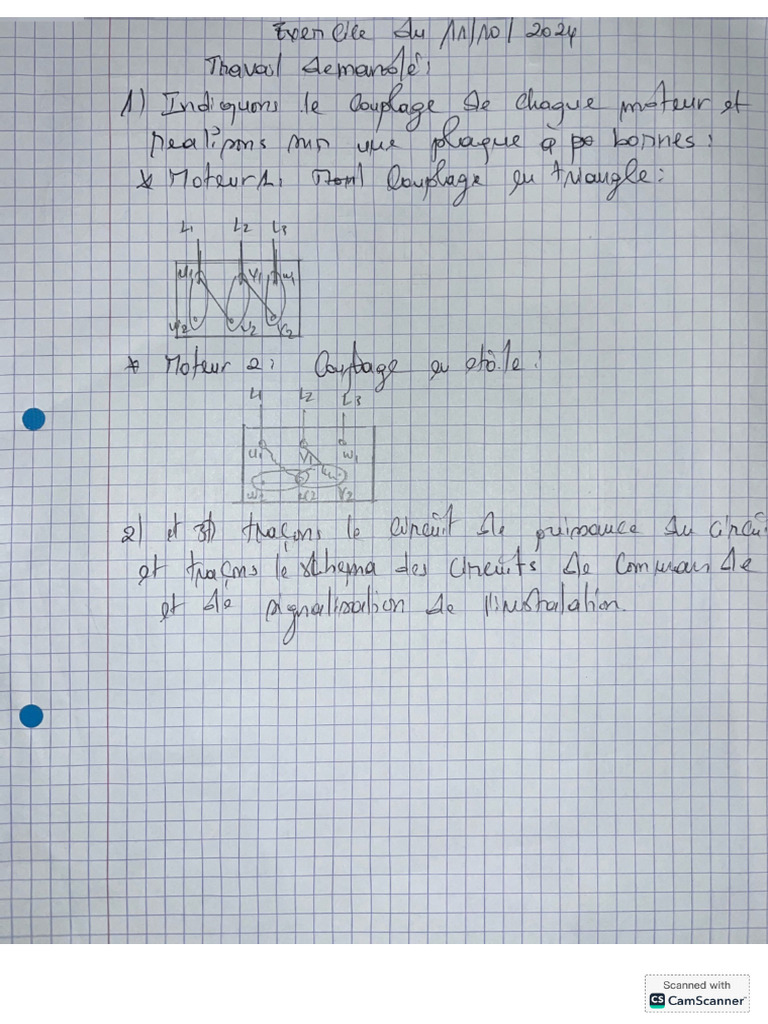 Exercice du 11/10/2024
Travail demandé:
1) Indiquons le couplage de chaque moteur et
réalisons sur une plaque à bornes:
* Moteur 1: Couplage en triangle:
L1 L2 L3
U1 V1 W1
W2 U2 V2
* Moteur 2: Couplage en etoile:
L1 L2 L3
U1 V1 W1
W2 U2 V2
2) et 3) traçons le circuit de puissance du circui
et traçons le schema des circuits de commande
et de signalisation de l'instalation.
Scanned with
CS CamScanner